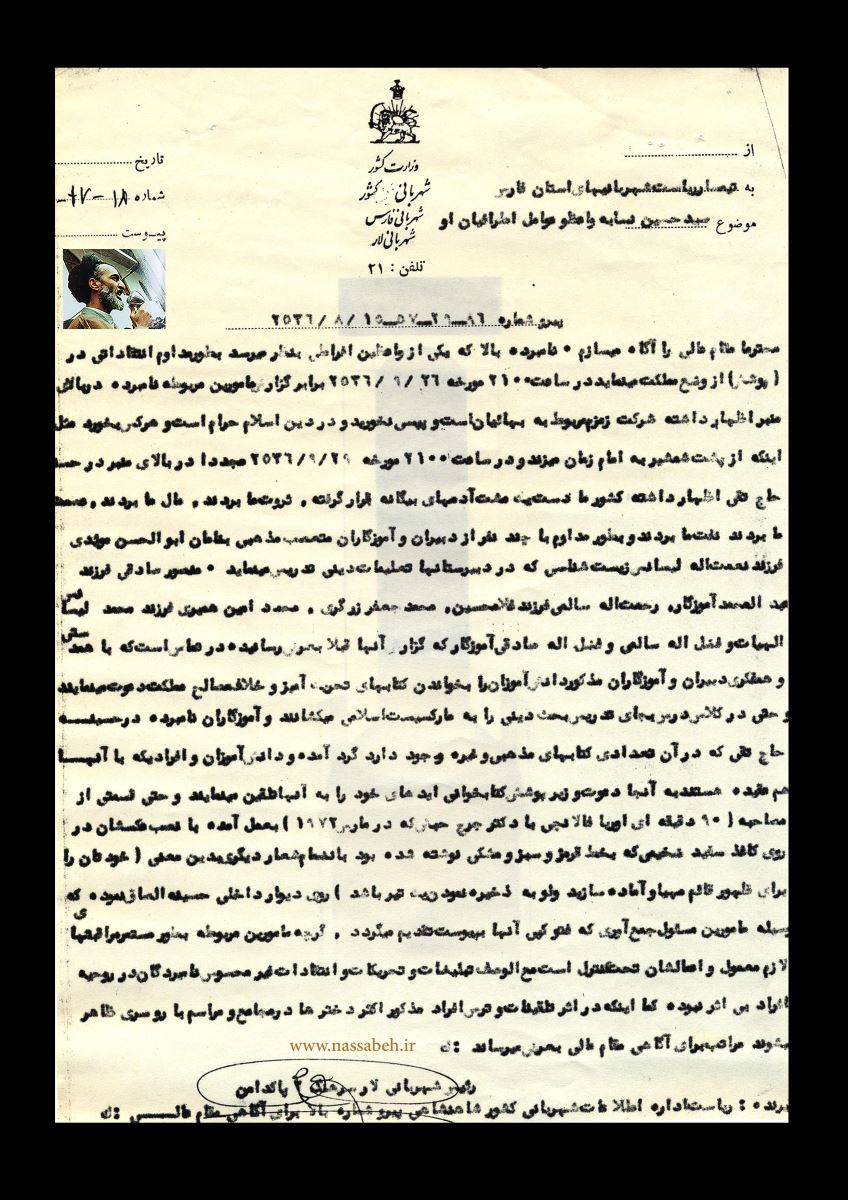 از
به تیمسار ریاست شهربانیهای استان فارس
موضوع سید حسین نسابه واعظ و عوامل اطرافیان او
وزارت کشور
شهربانی کشور
شهربانی فارس
شهربانی لار
تلفن : ۲۱
تاریخ
شماره
پیوست
پیرو شماره ۸۶ــ۲۹ــ۵۷ــ۱۵ / ۸ / ۲۵۳۶
محترما مقام عالی را آگاه میسازم ۰ نامبرده بالا که یکی از واعظین افراطی بنظر میرسد بطور مداوم انتقاداتی در
( پوشش ) از وضع مملکت مینماید در ساعت ۲۱۰۰ مورخه ۲۶ / ۹ / ۲۵۳۶ برابر گزارش مامورین مربوطه نامبرده در بالای
منبر اظهار داشته شرکت زمزم مربوط به بهائیان است و پپسی نخورید و در دین اسلام حرام است و هرکس بخورد مثل
اینکه از پشت شمشیر به امام زمان میزند و در ساعت ۲۱۰۰ مورخه ۲۵۳۶/۹/۲۹ مجددا در بالای منبر در
حاج تقی اظهار داشته کشور ما دست یک مشت آدمهای بیگانه قرار گرفته , ثروت ما بردند , مال ما بردند ,
ما بردند نفت ما بردند و بطور مداوم با چند نفر از دبیران و آموزگاران متعصب مذهبی بنامان ابوالحسن
فرزند نعمت اله لیسانس زیست شناسی که در دبیرستانها تعلیمات دینی تدریس مینماید ۰ منصور صادقی فرزند
عبد الصمد آموزگار, رحمت اله سالمی فرزند غلامحسین, محمد جعفر زرگری , محمد امین فرزند محمد لیسانس
الهیات و فضل اله سالمی و فضل اله صادقی آموزگار که گزارش آنها قبلا بعرض رسانیده در تماس است که با همدستی
و همفکری دبیران و آموزگاران مذکور دانش آموزان را بخواندن کتابهای تحریک آمیز و خلاف مصالح مملکت دعوت مینمایند
و حتی در کلاس درس بجای تدریس بحث دینی را به مارکسیست اسلامی میکشانند و آموزگاران نامبرده در حسینیـــه
حاج تقی که در آن تعدادی کتابهای مذهبی و غیره وجود دارد گرد آمده و دانش آموزان و افرادیکه با آنهـــا
هم عقیده هستند به آنجا دعوت و زیر پوشش کتابخوانی ایده های خود را به آنها تلقین مینمایند و حتی قسمتی از
مصاحبه ( ۹۰ دقیقه ای اوریا فالانچی با دکتر جرج حبش که در مارس ۱۹۷۲ ) بعمل آمده با نصب عکسشان در
روی کاغذ سفید ضخیمی که بخط قرمز و سبز و مشکی نوشته شده بود بانضمام شعار دیگری بدین معنی ( خودتان را
برای ظهور قائم مهیا و آماده سازید ولو به ذخیره نمودن یک تیر باشد ) روی دیوار داخلی حسینیه الصاق نموده که
بوسیله مامورین مسئول جمع آوری که فتوکپی آنها بپیوست تقدیم میگردد , گرچه مامورین مربوطه بطور مستمر مراقبتهای
لازم معمول و اعمالشان تحت کنترل است مع الوصف تبلیغات و تحریکات و انتقادات غیر محسوس نامبردگان در روحیه
افراد بی اثر نبوده کما اینکه در اثر تلقینات و ترس افراد مذکور اکثر دخترها در مجامع و مراسم با روسری ظاهر
میشوند مراتب برای آگاهی مقام عالی بعرض میرساند :ک
www.nassabeh.ir
رئیس شهربانی لار سرهنگ ۲ پاکدامن
گیرنده : ریاست اداره اطلاعات شهربانی کشور شاهنشاهی پیرو شماره بالا برای آگاهی مقام عالــــی :ک